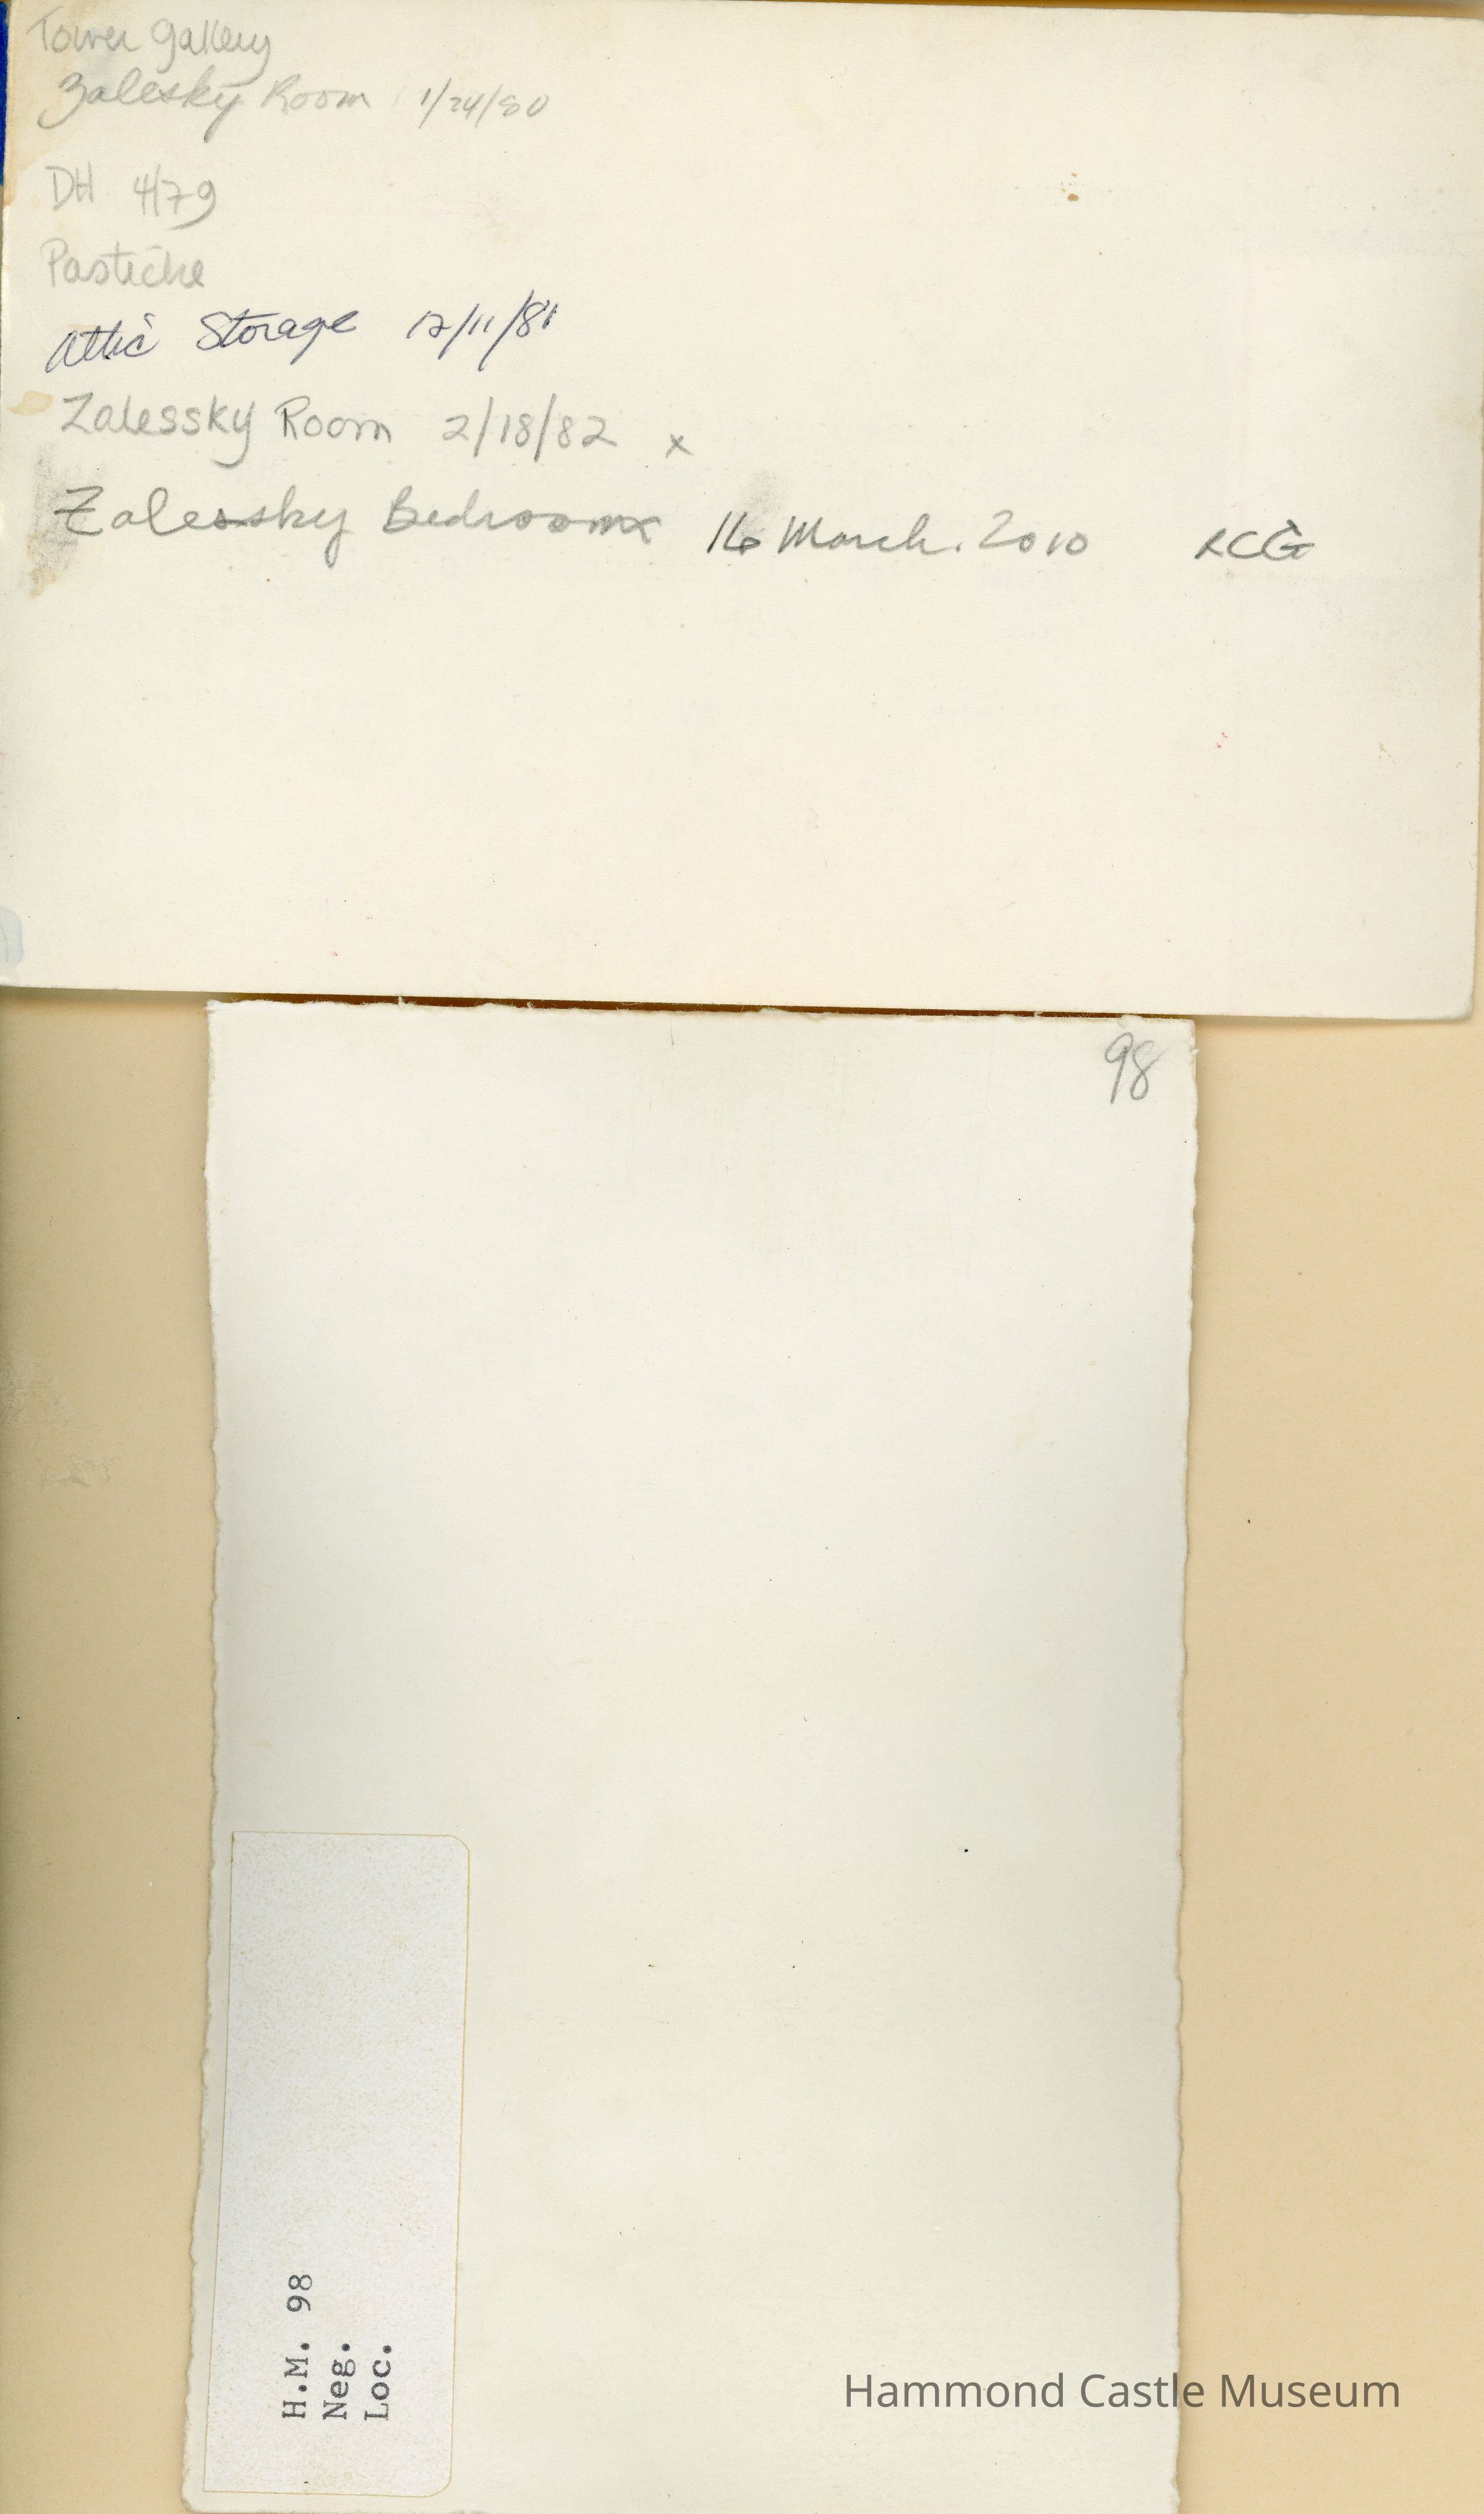 Tower Gallery
Zalesky Room 1/24/80
DH 4/79
Pastiche
Attic Storage 12/11/81
Zalessky Room 2/18/82 x
Zalessky Bedroom 16 March. 2010 RCG
98
H.M. 98
Neg.
Loc.
Hammond Castle Museum